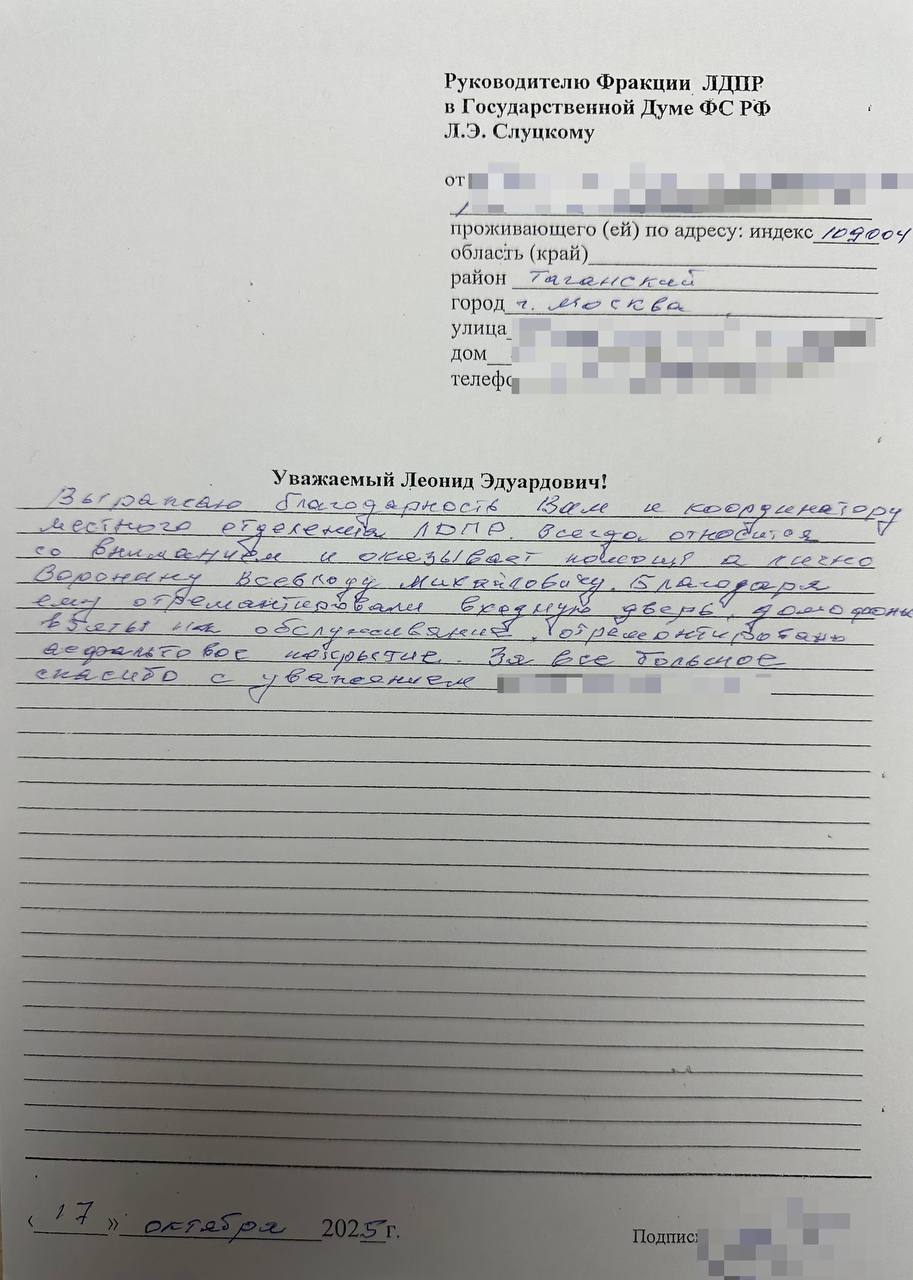 Руководителю Фракции ЛДПР
в Государственной Думе ФС РФ
Л.Э. Слуцкому
от
проживающего (ей) по адресу: индекс 109004
область (край)
район Таганский
город г. Москва
улица
дом
телефо
Уважаемый Леонид Эдуардович!
Выражаю благодарность Вам и координатору
местного отделения ЛДПР. Всегда относится
со вниманием и оказывает помощь а лично
Воронину Всеволоду Михайловичу. Благодаря
ему отремантировали входную дверь, домофоны
взяты на обслуживание, отремонтировано
асфальтовое покрытие. За все большое
спасибо с уважением
«17» октября 2025 г.
Подпис